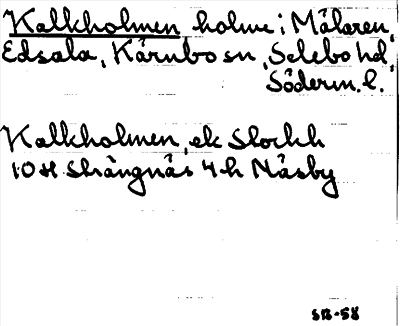 Kalkholmen holme i Mälaren,
Edsala, Kärnbo sn, Selebo hd,
Söderm. l.
Kalkholmen, ek Stockh
10 H Strängnäs 4 h Näsby
SB-58